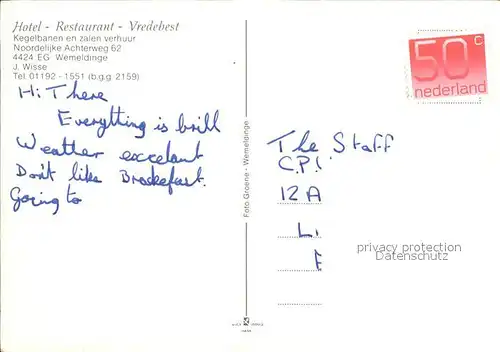 Hotel - Restaurant - Vredebest
Kegelbanen en zalen verhuur
Noordelijke Achterweg 62
4424 EG Wemeldinge
J. Wisse
Tel. 01192 - 1551 (b.g.g. 2159)
Hi There
Everything is brill
Weather excelant
Don't like Brockefast.
Going to
Foto Groene - Wemeldinge
50 c
nederland
The Staff
C.P.I.
12 A
L.
privacy protection
Datenschutz